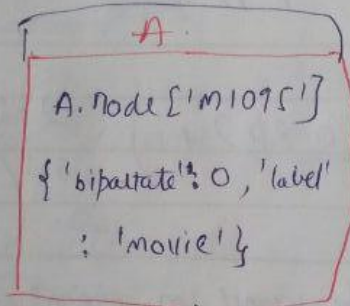 A.
A.node['M1095']
{'bipartate': 0, 'label'
: 'movie'}